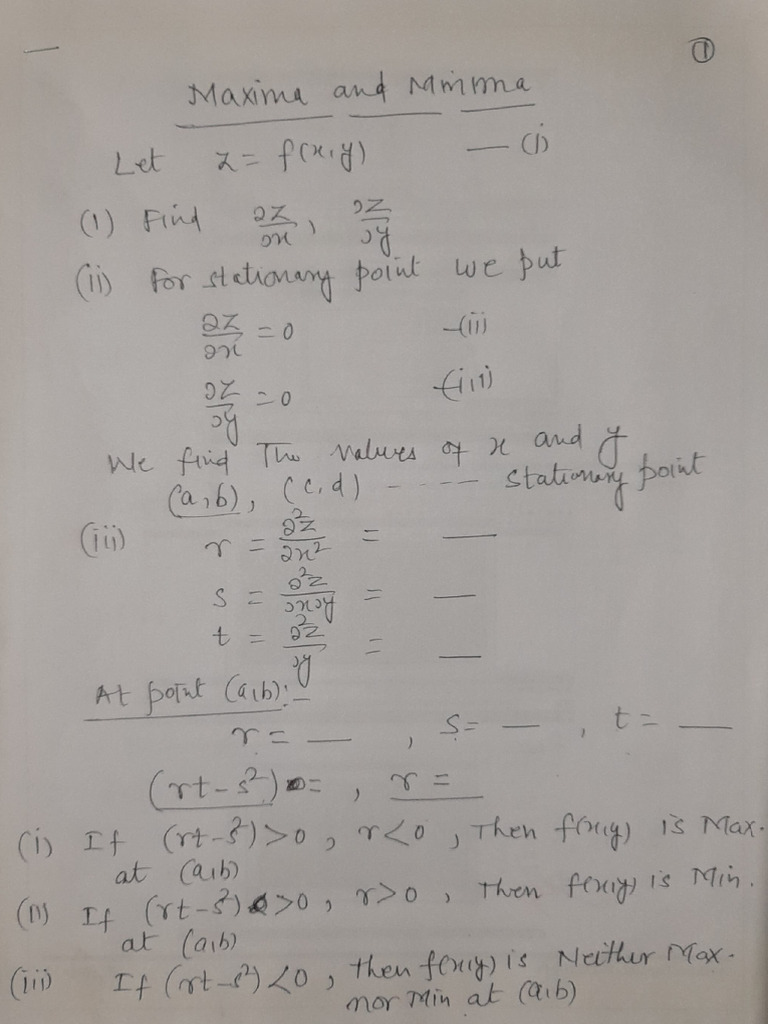 ①
Maxima and Minima
Let z = f(x,y) — (i)
(1) Find ∂z/∂x , ∂z/∂y
(ii) For stationary point we put
∂z/∂x = 0 —(ii)
∂z/∂y = 0 —(iii)
We find The values of x and y
(a,b), (c,d) ---- stationary point
(iii) r = ∂²z/∂x² = —
s = ∂²z/∂x∂y = —
t = ∂²z/∂y = —
At point (a,b):-
r = — , s = — , t = —
(rt-s²) = , r =
(i) If (rt-s²)>0 , r<0 , Then f(x,y) is Max.
at (a,b)
(ii) If (rt-s²) >0 , r>0 , Then f(x,y) is Min.
at (a,b)
(iii) If (rt-s²) <0 , then f(x,y) is Neither Max.
nor Min at (a,b)